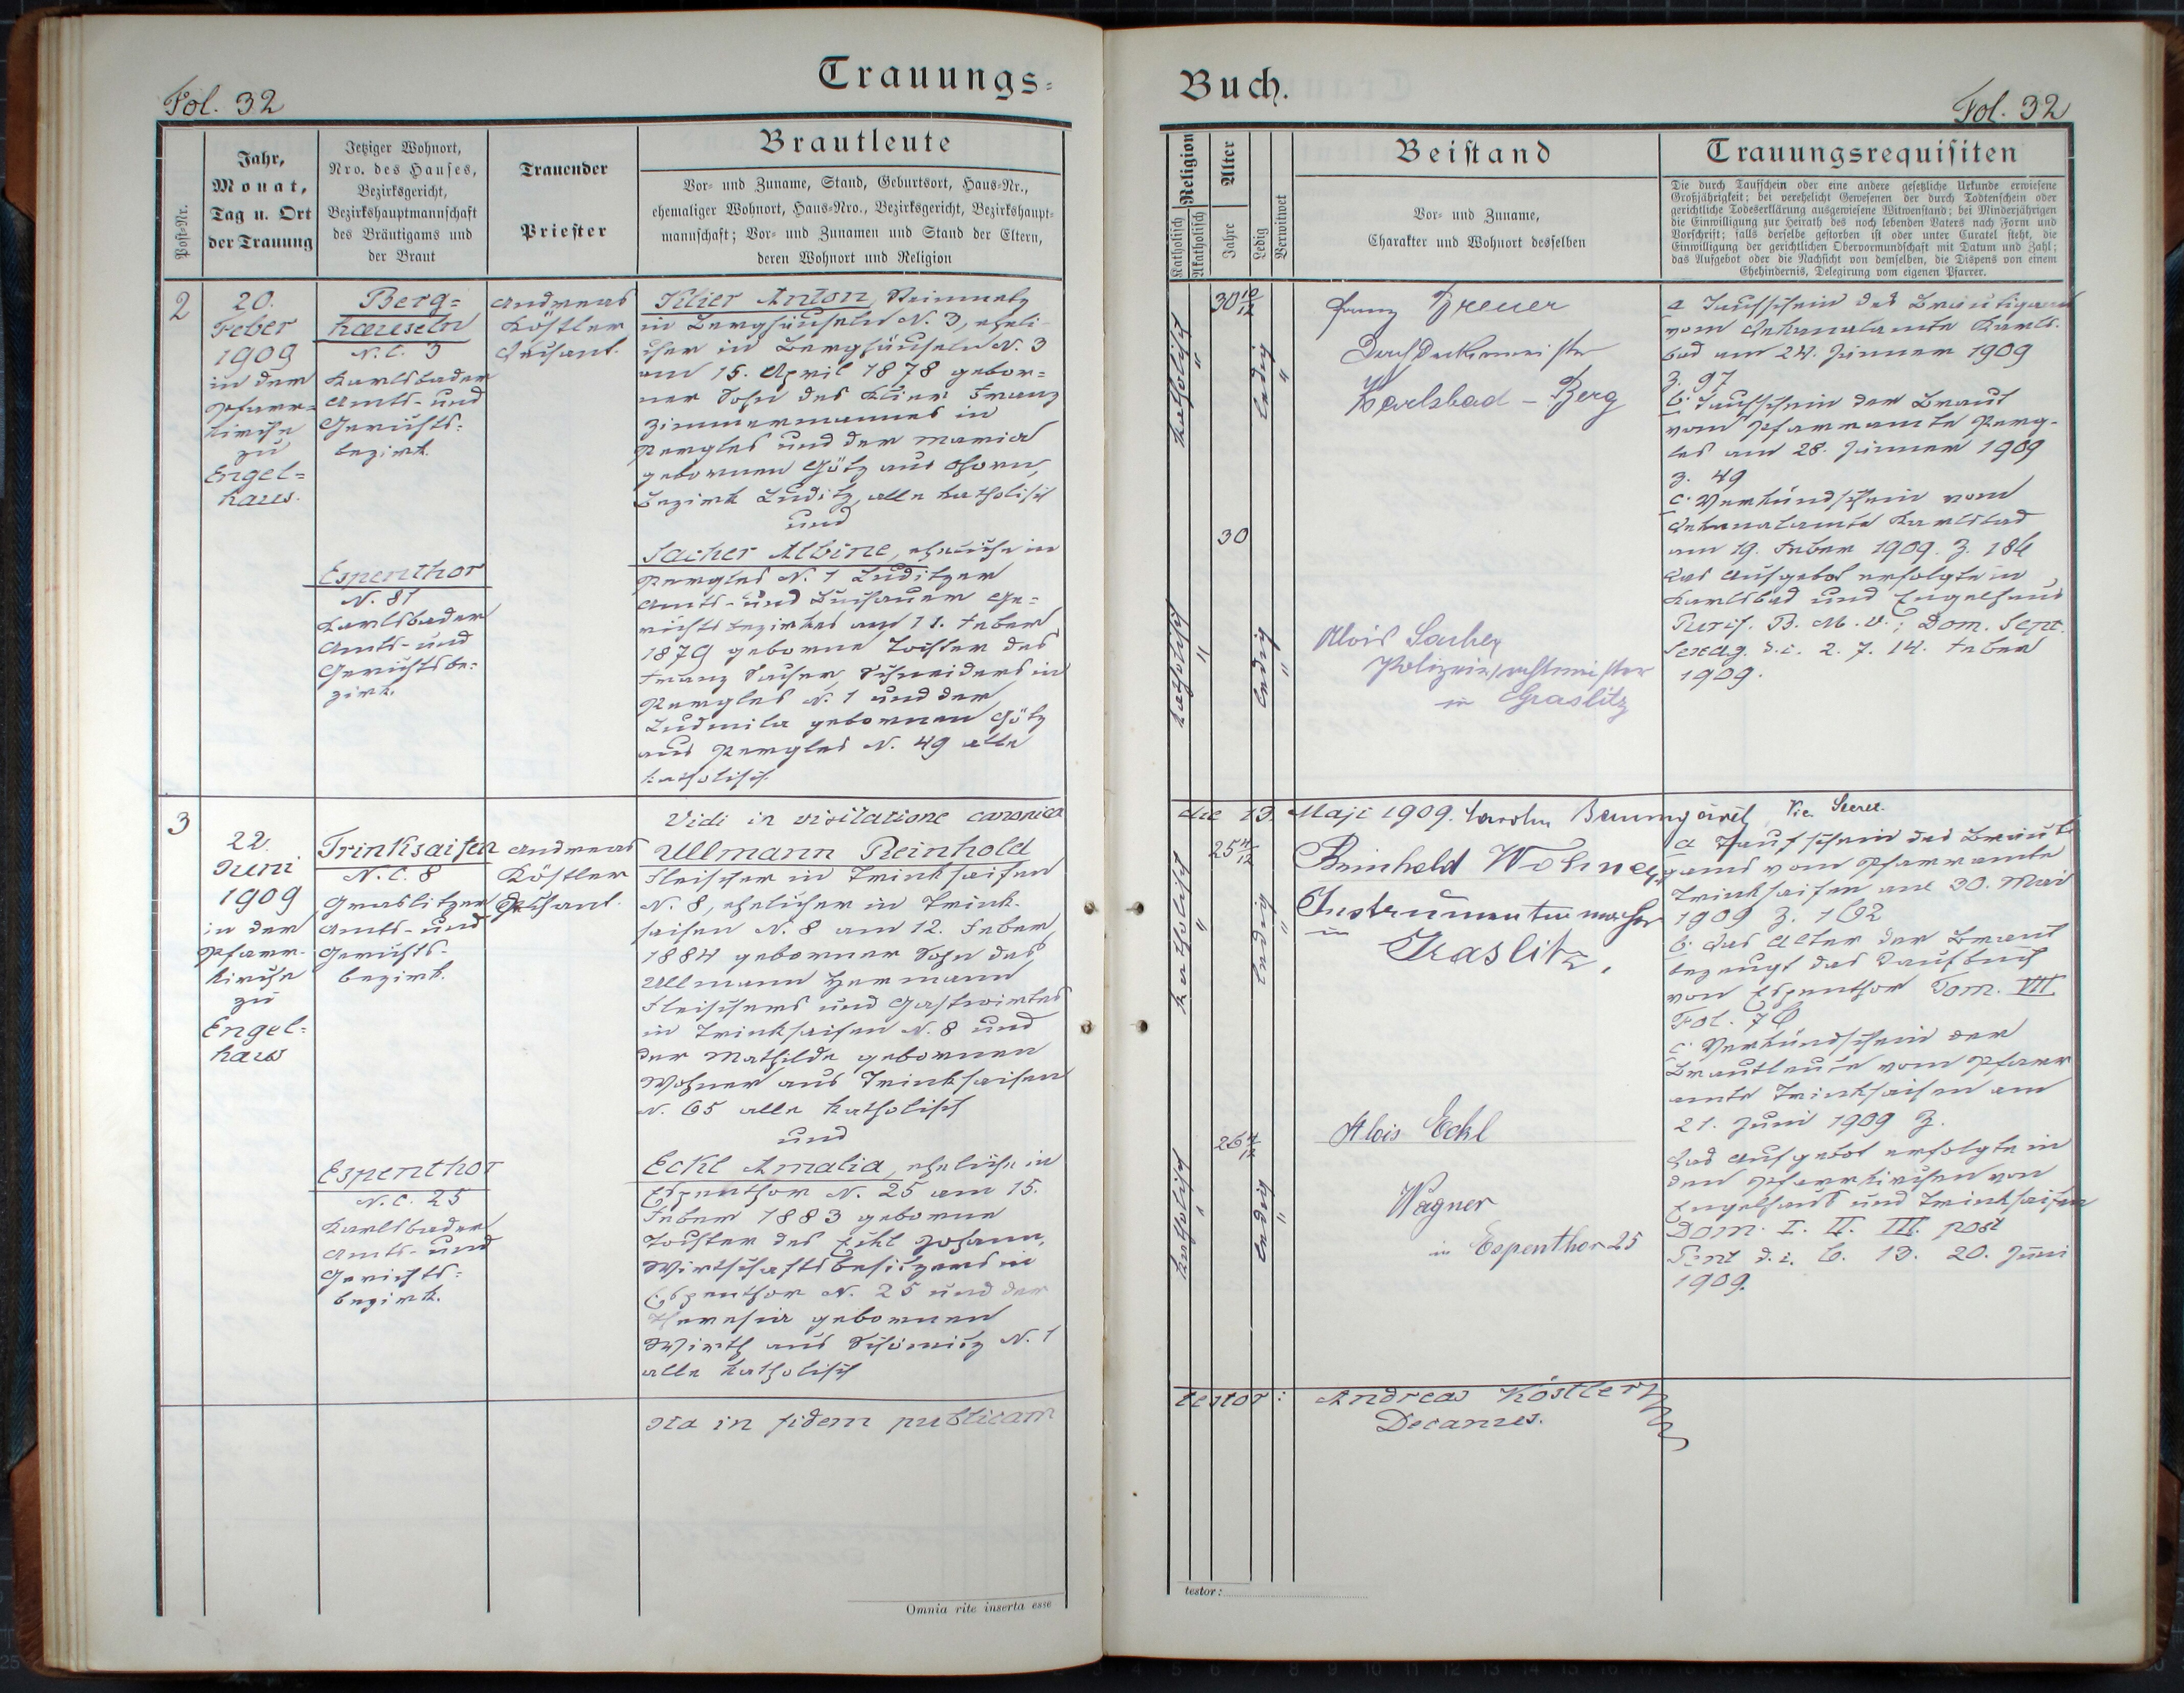 Trauungs=
Fol. 32
Post-Nr.
Jahr,
Monat,
Tag u. Ort
der Trauung
Jetziger Wohnort,
Nro. des Hauses,
Bezirksgericht,
Bezirkshauptmannschaft
des Bräutigams und
der Braut
Trauender
Priester
Brautleute
Vor- und Zuname, Stand, Geburtsort, Haus-Nr.,
ehemaliger Wohnort, Haus-Nro., Bezirksgericht, Bezirkshaupt-
mannschaft; Vor- und Zunamen und Stand der Eltern,
deren Wohnort und Religion
2
20.
Feber
1909
in der
Pfarr-
kirche
zu
Engel=
haus.
Berg=
häuseln
N.C. 3
Karlsbader
Amts- und
Gerichts-
bezirk.
Espenthor
N. 81
Karlsbader
Amts- und
Gerichtsbe-
zirk.
Andreas
Köstler
Dechant.
Klier Anton, Steinmetz
in Berghäuseln N. 3, eheli-
cher in Berghäuseln N. 3
am 15. April 1878 gebor=
ner Sohn des Klier Franz
Zimmermannes in
Pergles und der Maria
gebornen Götz aus
Bezirk Luditz, alle katholisch
und
Sacher Albine, eheliche in
Pergles N. 1 Luditzer
Amts- und Buchauer Ge=
richtsbezirkes am 11. Feber
1879 geborne Tochter des
Franz Sacher, Schneiders in
Pergles N. 1 und der
Ludmila gebornen Götz
aus Pergles N. 49 alle
katholisch.
3
22.
Juni
1909
in der
Pfarr-
kirche
zu
Engel=
haus
Trinksaifen
N.C. 8
Graslitzer
Amts- und
Gerichts-
bezirk.
Espenthor
N.C. 25
Karlsbader
Amts- und
Gerichts=
bezirk.
Andreas
Köstler
Dechant.
Vidi in visitatione canonica
Ullmann Reinhold
Fleischer in Trinksaifen
N. 8, ehelicher in Trink-
saifen N. 8 am 12. Feber
1884 geborner Sohn des
Ullmann Hermann
Fleischers und Gastwirtes
in Trinksaifen N. 8 und
der Mathilde gebornen
Wohner aus Trinksaifen
N. 65 alle katholisch
und
Eckl Amalia, eheliche in
Espenthor N. 25 am 15.
Feber 1883 geborne
Tochter des Eckl Johann,
Wirtschaftsbesitzers in
Espenthor N. 25 und der
Theresia gebornen
Wirth aus Schömitz N. 1
alle katholisch
Ita in fidem publicam
Omnia rite inserta esse
Buch.
Fol. 32
Religion
Katholisch
Akatholisch
Alter
Jahre
Ledig
Verwitwet
Beistand
Vor- und Zuname,
Charakter und Wohnort desselben
Trauungsrequisiten
Die durch Taufschein oder eine andere gesetzliche Urkunde erwiesene
Großjährigkeit; bei verehelicht Gewesenen der durch Todtenschein oder
gerichtliche Todeserklärung ausgewiesene Witwenstand; bei Minderjährigen
die Einwilligung zur Heirath des noch lebenden Vaters nach Form und
Vorschrift; falls derselbe gestorben ist oder unter Curatel steht, die
Einwilligung der gerichtlichen Obervormundschaft mit Datum und Zahl;
das Aufgebot oder die Nachsicht von demselben, die Dispens von einem
Ehehindernis, Delegirung vom eigenen Pfarrer.
katholisch
"
30 10/12
ledig
"
Franz Breuer
Dachdeckermeister
Karlsbad - Berg
katholisch
"
30
ledig
"
Alois Sacher
Polizeiwachtmeister
in Graslitz
a Taufschein des Bräutigams
vom Dekanalamte Karls-
bad am 24. Jänner 1909
Z. 97
b. Taufschein der Braut
vom Pfarramte Perg-
les am 28. Jänner 1909
Z. 49
c. Verkündschein vom
Dekanalamte Karlsbad
am 19. Feber 1909. Z. 186
Das Aufgebot erfolgte in
Karlsbad und Engelhaus
Purif. B. M. V.; Dom. Sept.
Sexag. d.i. 2. 7. 14. Feber
1909.
die 13. Maji 1909. Baumgärtl, Vic. Secret.
katholisch
"
25 4/12
ledig
"
Reinhold Wohner,
Instrumentenmacher
in
Graslitz,
katholisch
"
26 4/12
ledig
"
Alois Eckl
Wagner
in Espenthor 25
a Taufschein des Bräuti
gams vom Pfarramte
Trinksaifen am 30. Mai
1909 Z. 162
b. das Alter der Braut
bezeugt das Taufbuch
von Espenthor Tom. VII
Fol. 76
c. Verkündschein der
Brautleute vom Pfarr
amte Trinksaifen am
21. Juni 1909 Z.
Das Aufgebot erfolgte in
den Pfarrkirchen von
Engelhaus und Trinksaifen
Dom. I. II. III. post
Pent d.i. 6. 13. 20. Juni
1909.
testor: Andreas Köstler
Decanus.
testor: